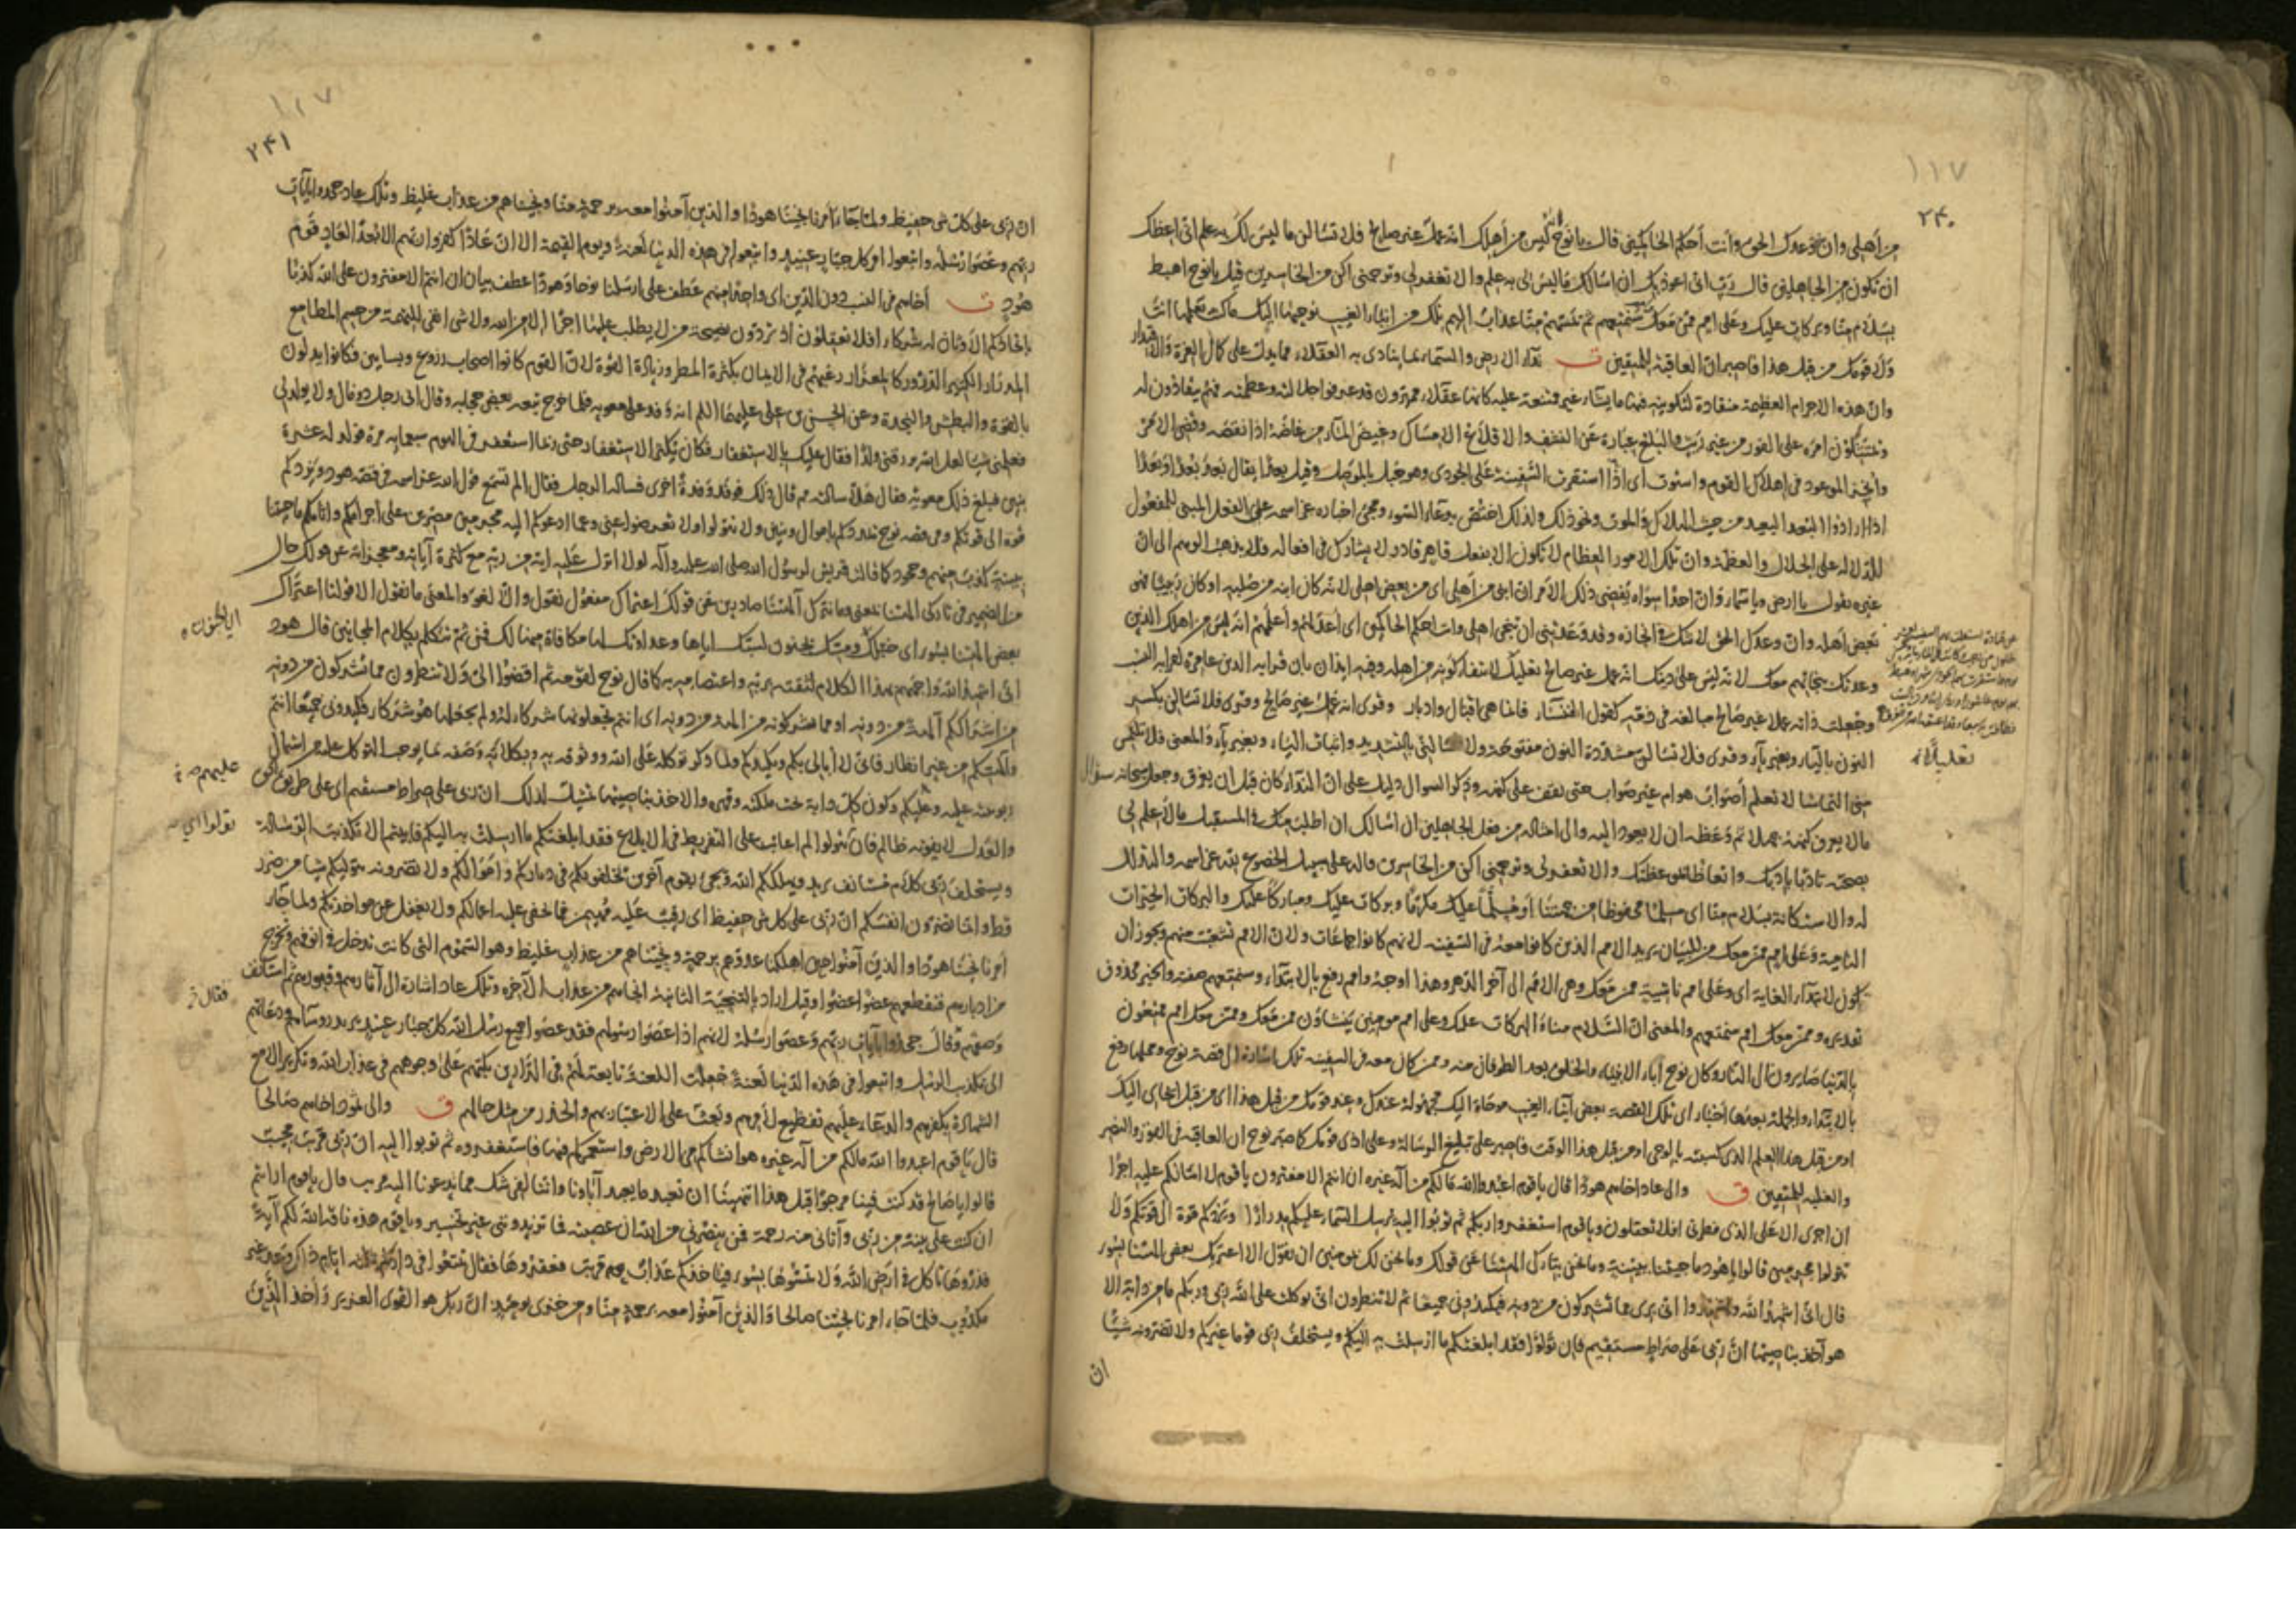 ١١٧
٢٤٠
من أهلي وان وعدك الحق وأنت أحكم الحاكمين قال يا نوح انه ليس من أهلك انه عمل غير صالح فلا تسألن ما ليس لك به علم اني اعظك
ان تكون من الجاهلين قال رب اني اعوذ بك ان اسالك ما ليس لي به علم والا تغفر لي وترحمني اكن من الخاسرين قيل يا نوح اهبط
بسلام منا وبركات عليك وعلى امم ممن معك وامم سنمتعهم ثم يمسهم منا عذاب اليم تلك من انباء الغيب نوحيها اليك ما كنت تعلمها انت
ولا قومك من قبل هذا فاصبر ان العاقبة للمتقين ت نداء الارض والسماء بما ينادى به العقلاء مما يدل على كمال العزة والاقتدار
وان هذه الاجرام العظيمة منقادة لتكوينه فيها ما يشاء غير ممتنعة عليه كانها عقلاء مميزون قد عرفوا جلالته وعظمته فهم ينقادون له
ويمتثلون امره على الفور من غير ريث والبلع عبارة عن النشف والاقلاع الامساك وغيض الماء من غاضه اذا نقصه وقضي الامر
وانجز الموعود في اهلاك القوم واستوت اي استقرت السفينة على الجودي وهو جبل بالموصل وقيل بعدا يقال بعد بعدا وبعدا
اذا ارادوا البعد البعيد من حيث الهلاك والموت ونحو ذلك ولذلك اختص بدعاء السوء ومجيء اخباره عز اسمه على الفعل المبني للمفعول
للدلالة على الجلال والعظمة وان تلك الامور العظام لا تكون الا بفعل قاهر قادر لا يشارك في افعاله فلا يذهب الوهم الى ان
غيره يقول يا ارض ويا سماء وان احدا سواه يقضي ذلك الامر ان ابني من أهلي اي من بعض اهلي لانه كان ابنه من صلبه او كان ربيبا فهو
بعض اهله وان وعدك الحق لا شك في انجازه وقد وعدتني ان تنجي اهلي وانت احكم الحاكمين اي أعدلهم وأعلمهم انه ليس من اهلك الذين
وعدتك بنجاتهم معك لانه ليس على دينك انه عمل غير صالح تعليل لانتفاء كونه من اهله وفيه ايذان بان قرابة الدين غامرة لقرابة النسب
وجعلت ذاته عملا غير صالح مبالغة في ذمه كقول الخنساء فانما هي اقبال وادبار وقرئ انه عمل غير صالح وقرئ فلا تسالن بكسر
النون بالياء وبغير ياء وقرئ فلا تسالن مشددة النون مفتوحة ولا تسالني بالتشديد واثبات الياء وبغير ياء والمعنى فلا تلتمس
مني التماسا لا تعلم أصواب هو ام غير صواب حتى تقف على كنهه وذكر السوال دليل على ان النداء كان قبل ان يغرق وجعل سبحانه سؤال
ما لا يعرف كنهه جهلا ثم وعظه ان لا يعود اليه والى امثاله من فعل الجاهلين ان اسالك ان اطلب منك في المستقبل ما لا علم لي
بصحته تادبا بادبك واتعاظا بموعظتك والا تغفر لي وترحمني اكن من الخاسرين قاله على سبيل الخضوع لله عز اسمه والتذلل
له والاستكانة بسلام منا اي مسلما محفوظا من جهتنا أو مسلما عليك مكرما وبركات عليك ومباركا عليك والبركات الخيرات
النامية وعلى امم ممن معك من للبيان يريد الامم الذين كانوا معه في السفينة لانهم كانوا جماعات ولان الامم تشعبت منهم ويجوز ان
تكون لابتداء الغاية اي وعلى امم ناشية ممن معك وهي الامم الى آخر الدهر وهذا اوجه وامم رفع بالابتداء وسنمتعهم صفته والخبر محذوف
تقديره وممن معك امم سنمتعهم والمعنى ان السلام منا والبركات عليك وعلى امم مومنين ينشاون ممن معك وممن معك امم ممتعون
بالدنيا صايرون الى النار وكان نوح ابا الانبياء والخلق بعد الطوفان منه وممن كان معه في السفينة تلك اشارة الى قصة نوح ومحلها رفع
بالابتداء والجملة بعدها أخبار اي تلك القصة بعض أنباء الغيب موحاة اليك مجهولة عندك وعند قومك من قبل هذا اي من قبل ايحاي اليك
او من قبل هذا العلم الذي كسبته بالوحي او من قبل هذا الوقت فاصبر على تبليغ الرسالة وعلى اذى قومك كما صبر نوح ان العاقبة في الفوز والنصر
والغلبة للمتقين ق والى عاد اخاهم هودا قال يا قوم اعبدوا الله ما لكم من آله غيره ان انتم الا مفترون يا قوم لا اسالكم عليه اجرا
ان اجري الا على الذي فطرني افلا تعقلون ويا قوم استغفروا ربكم ثم توبوا اليه يرسل السماء عليكم مدرارا ويزدكم قوة الى قوتكم ولا
تتولوا مجرمين قالوا يا هود ما جيتنا ببينة وما نحن بتاركي آلهتنا عن قولك وما نحن لك بمومنين ان نقول الا اعتريك بعض آلهتنا بسوء
قال اني اشهد الله واشهدوا اني بري مما تشركون من دونه فكيدوني جميعا ثم لا تنظرون اني توكلت على الله ربي وربكم ما من دابة الا
هو آخذ بناصيتها ان ربي على صراط مستقيم فان تولوا فقد ابلغتكم ما ارسلت به اليكم ويستخلف ربي قوما غيركم ولا تضرونه شيئا
ان
تعليلا لانه
١١٧
٢٤١
ان ربي على كل شي حفيظ ولما جاء أمرنا نجينا هودا والذين آمنوا معه برحمة منا ونجيناهم من عذاب غليظ وتلك عاد جحدوا بآيات
ربهم وعصوا رسله واتبعوا امر كل جبار عنيد واتبعوا في هذه الدنيا لعنة ويوم القيمة الا ان عادا كفروا ربهم الا بعدا لعاد قوم
هود ت أخاهم في النسب دون الدين اي واحدا منهم عطف على ارسلنا نوحا وهودا عطف بيان ان انتم الا مفترون على الله كذبا
باتخاذكم الاوثان له شركاء افلا تعقلون اذ تردون نصيحة من لا يطلب عليها اجرا الا من الله ولا شي انفى للتهمة من حسم المطامع
المدرار الكثير الدرور كالمغزار رغبهم في الايمان بكثرة المطر وزيادة القوة لان القوم كانوا اصحاب زروع وبساتين وكانوا يدلون
بالقوة والبطش والنجدة وعن الحسن بن علي عليهما السلم انه وفد على معوية فلما خرج تبعه بعض حجابه وقال اني رجل ذو مال ولا يولد لي
فعلمني شيا لعل الله يرزقني ولدا فقال عليك بالاستغفار فكان يكثر الاستغفار حتى ربما استغفر في اليوم سبعماية مرة فولد له عشرة
بنين فبلغ ذلك معوية فقال هلا سالته مم قال ذلك فوفد وفدة أخرى فساله الرجل فقال الم تسمع قول الله عز اسمه في قصة هود ويزدكم
قوة الى قوتكم وفي قصة نوح يمددكم باموال وبنين ولا تتولوا ولا تعرضوا عني وعما ادعوكم اليه مجرمين مصرين على اجرامكم واثامكم ما جيتنا
ببينة كذب منهم وجحود كما قالت قريش لرسول الله صلى الله عليه وآله لولا انزل عليه اية من ربه مع كثرة آياته ومعجزاته عن قولك حال
من الضمير في تاركي آلهتنا يعني وما نترك آلهتنا صادرين عن قولك اعتراك مفعول نقول والا لغو والمعنى ما نقول الا قولنا اعتراك
بعض آلهتنا بسوء اي خبلك ومسك بجنون لسبك اياها وعداوتك لها مكافاة منها لك فمن ثم تتكلم بكلام المجانين قال هود
اني اشهد الله واجههم بهذا الكلام لثقته بربه واعتصامه به كما قال نوح لقومه ثم اقضوا الي ولا تنظرون مما تشركون من دونه
من اشراككم آلهة من دونه او مما تشركونه من آلهة من دونه اي انتم تجعلونها شركاء له ولم يجعلها هو شركاء فكيدوني جميعا انتم
وآلهتكم من غير انظار فاني لا أبالي بكم وبكيدكم ولما ذكر توكله على الله ووثوقه به وبكلاءته وصفه بما يوجب التوكل عليه من اشتمال
ربوبيته عليه وعليكم وكون كل دابة تحت ملكته وقهره والاخذ بناصيتها تمثيل لذلك ان ربي على صراط مستقيم اي على طريق الحق
والعدل لا يفوته ظالم فان تتولوا لم اعاتب على التفريط في الابلاغ فقد ابلغتكم ما ارسلت به اليكم فابيتم الا تكذيب الرسالة
ويستخلف ربي كلام مستانف يريد ويهلككم الله ويجيء بقوم آخرين يخلفونكم في دياركم واموالكم ولا تضرونه بتوليكم شيا من ضرر
قط وانما تضرون انفسكم ان ربي على كل شي حفيظ اي رقيب عليه مهيمن فما تخفى عليه اعمالكم ولا يغفل عن مواخذتكم ولما جاء
أمرنا نجينا هودا والذين آمنوا حين اهلكنا عدوهم برحمة ونجيناهم من عذاب غليظ وهو السموم التي كانت تدخل في انوفهم وتخرج
من ادبارهم فتقطعهم عضوا عضوا وقيل اراد بالتنجية الثانية انجاءهم من عذاب الآخرة وتلك عاد اشارة الى آثارهم وقبورهم ثم استانف
وصفهم وقال جحدوا بآيات ربهم وعصوا رسله لانهم اذا عصوا رسولهم فقد عصوا جميع رسل الله كل جبار عنيد يريد روساءهم ودعاتهم
الى تكذيب الرسل واتبعوا في هذه الدنيا لعنة جعلت اللعنة تابعة لهم في الدارين تكبهم على وجوههم في عذاب الله وتكرير الا مع
الشهادة بكفرهم والدعاء عليهم تفظيع لأمرهم وبعث على الاعتبار بهم والحذر من مثل حالهم ق والى ثمود اخاهم صالحا
قال يا قوم اعبدوا الله مالكم من آله غيره هو انشاكم من الارض واستعمركم فيها فاستغفروه ثم توبوا اليه ان ربي قريب مجيب
قالوا يا صالح قد كنت فينا مرجوا قبل هذا اتنهينا ان نعبد ما يعبد آباؤنا واننا لفي شك مما تدعونا اليه مريب قال يا قوم ارايتم
ان كنت على بينة من ربي وآتاني منه رحمة فمن ينصرني من الله ان عصيته فما تزيدونني غير تخسير ويا قوم هذه ناقة الله لكم آية
فذروها تاكل في ارض الله ولا تمسوها بسوء فياخذكم عذاب قريب فعقروها فقال تمتعوا في داركم ثلثة ايام ذلك وعد غير
مكذوب فلما جاء امرنا نجينا صالحا والذين آمنوا معه برحمة منا ومن خزي يومئذ ان ربك هو القوي العزيز وأخذ الذين
عليهم
تولوا اي
فقال